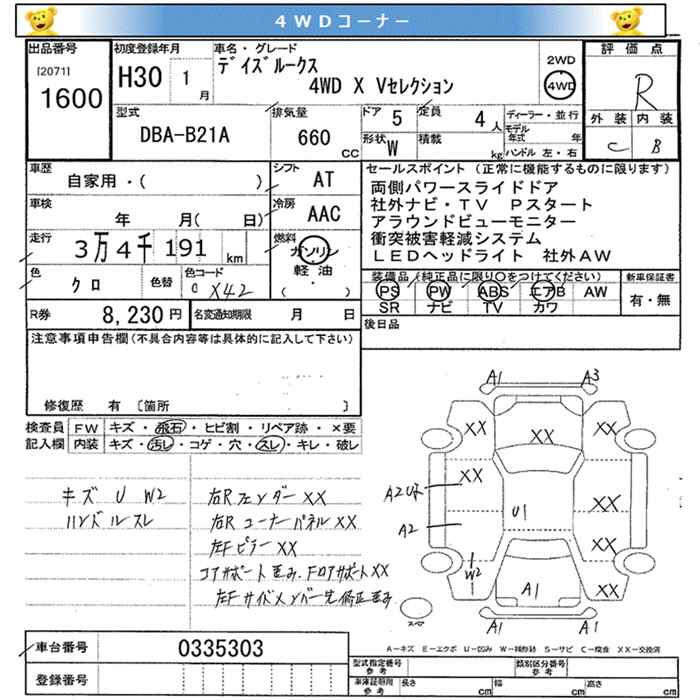 4WDコーナー
出品番号
[2071]
1600
初度登録年月
H30 1月
車名・グレード
デイズルークス
4WD X Vセレクション
2WD
4WD
評価点
R
外装 内装
C B
型式
DBA-B21A
排気量
660 CC
ドア 5
定員 4人
形状 W
積載 kg
ディーラー・並行
モデル年式 年
ハンドル 左・右
車歴
自家用・( )
シフト
AT
車検
年 月( 日)
冷房
AAC
走行
3万4千191 km
燃料
ガソリン
軽油
( )
色
クロ
色替
色コード
X42
R券 8,230円
名変通知期限 月 日
セールスポイント(正常に機能するものに限ります)
両側パワースライドドア
社外ナビ・TV Pスタート
アラウンドビューモニター
衝突被害軽減システム
LEDヘッドライト 社外AW
装備品(純正品に限り○をつけてください)
PS PW ABS エアB AW
SR ナビ TV カワ
新車保証書
有・無
後日品
注意事項申告欄(不具合内容等は具体的に記入して下さい)
修復歴 有 〔箇所 〕
検査員記入欄
FW キズ・飛石・ヒビ割・リペア跡・×要
内装 キズ・汚レ・コゲ・穴・スレ・キレ・破レ
キズ U W2
ハンドルスレ
右Rフェンダー XX
右R コーナーパネル XX
左Fピラー XX
コアサポート歪み、Fロアサポート XX
左Fサイドメンバー先修正歪み
A1 A3
XX XX XX
XX
A2
U1
XX
A2
XX
W2
A1
XX
A1 A1
スペア
A-キズ E-エクボ U-凹み W-補修跡 S-サビ C-腐食 XX-交換済
車台番号 0335303
登録番号
型式指定番号 参考
類別区分番号 参考
車庫証明用 参考
長さ cm
幅 cm
高さ cm